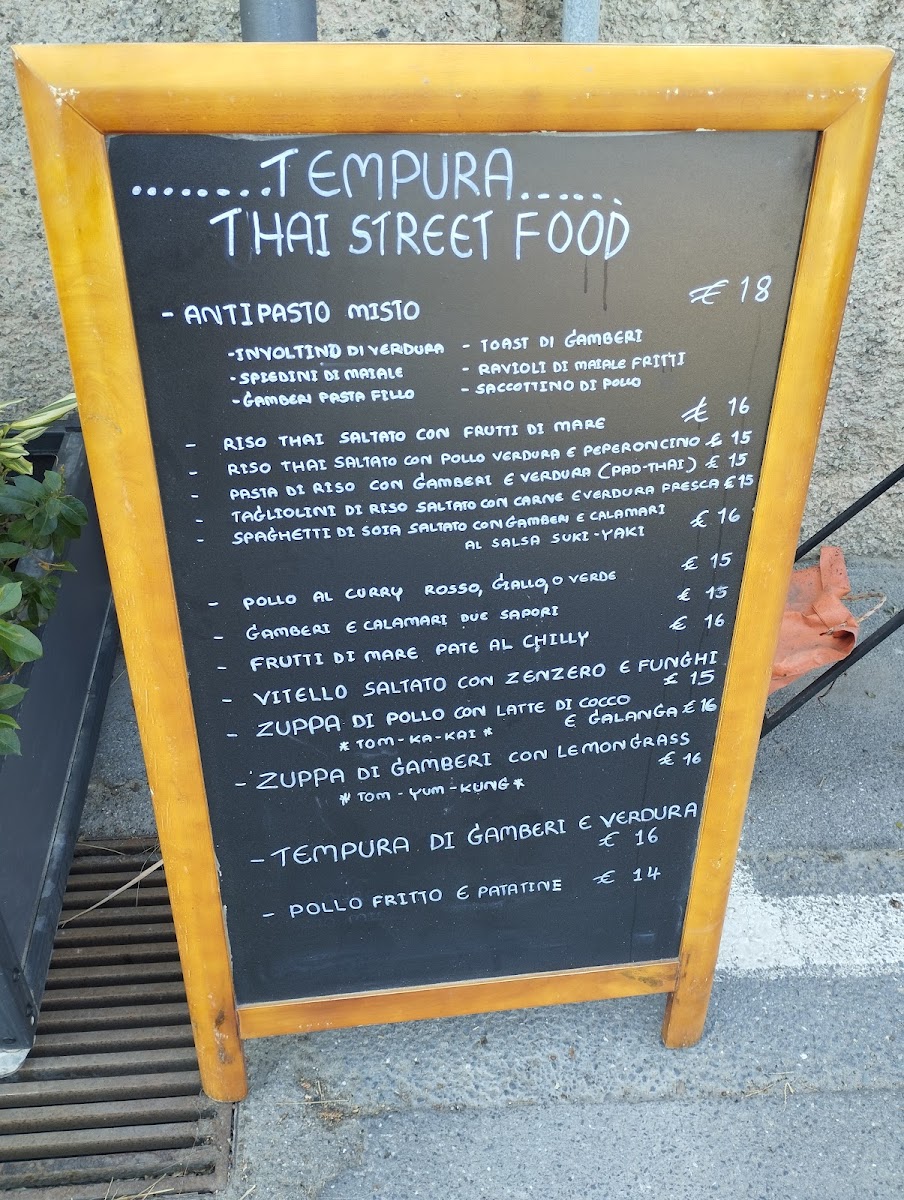 ........TEMPURA......
THAI STREET FOOD
- ANTIPASTO MISTO € 18
-INVOLTINO DI VERDURA - TOAST DI GAMBERI
-SPIEDINI DI MAIALE - RAVIOLI DI MAIALE FRITTI
-GAMBERI PASTA FILLO - SACCOTTINO DI POLLO
- RISO THAI SALTATO CON FRUTTI DI MARE € 16
- RISO THAI SALTATO CON POLLO VERDURA E PEPERONCINO € 15
- PASTA DI RISO CON GAMBERI E VERDURA (PAD-THAI) € 15
- TAGLIOLINI DI RISO SALTATO CON CARNE E VERDURA FRESCA € 15
- SPAGHETTI DI SOIA SALTATO CON GAMBERI E CALAMARI € 16
AL SALSA SUKI-YAKI
- POLLO AL CURRY ROSSO, GIALLO, O VERDE € 15
- GAMBERI E CALAMARI DUE SAPORI € 15
- FRUTTI DI MARE PATE AL CHILLY € 16
- VITELLO SALTATO CON ZENZERO E FUNGHI
€ 15
- ZUPPA DI POLLO CON LATTE DI COCCO
*TOM-KA-KAI* E GALANGA € 16
- ZUPPA DI GAMBERI CON LEMONGRASS
*TOM-YUM-KUNG* € 16
- TEMPURA DI GAMBERI E VERDURA
€ 16
- POLLO FRITTO E PATATINE € 14